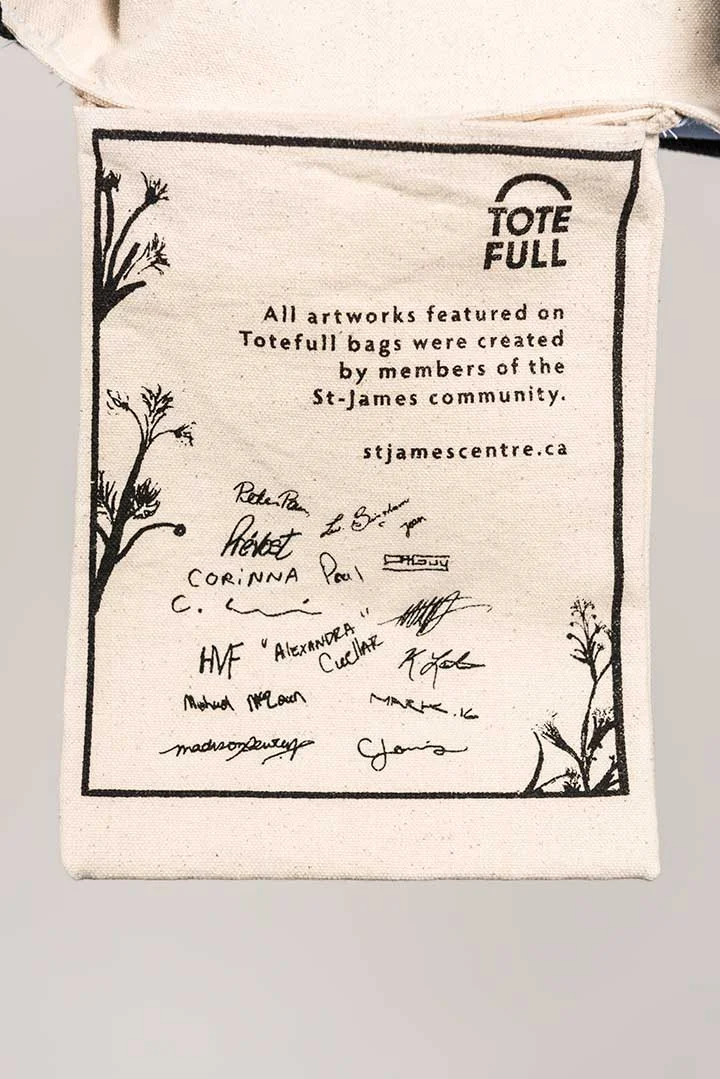 TOTE
FULL
All artworks featured on
Totefull bags were created
by members of the
St-James community.
stjamescentre.ca
Prévost
CORINNA Paul
C.
HVF "ALEXANDRA"
Cuellar
K
Michael
MARK. K
madison